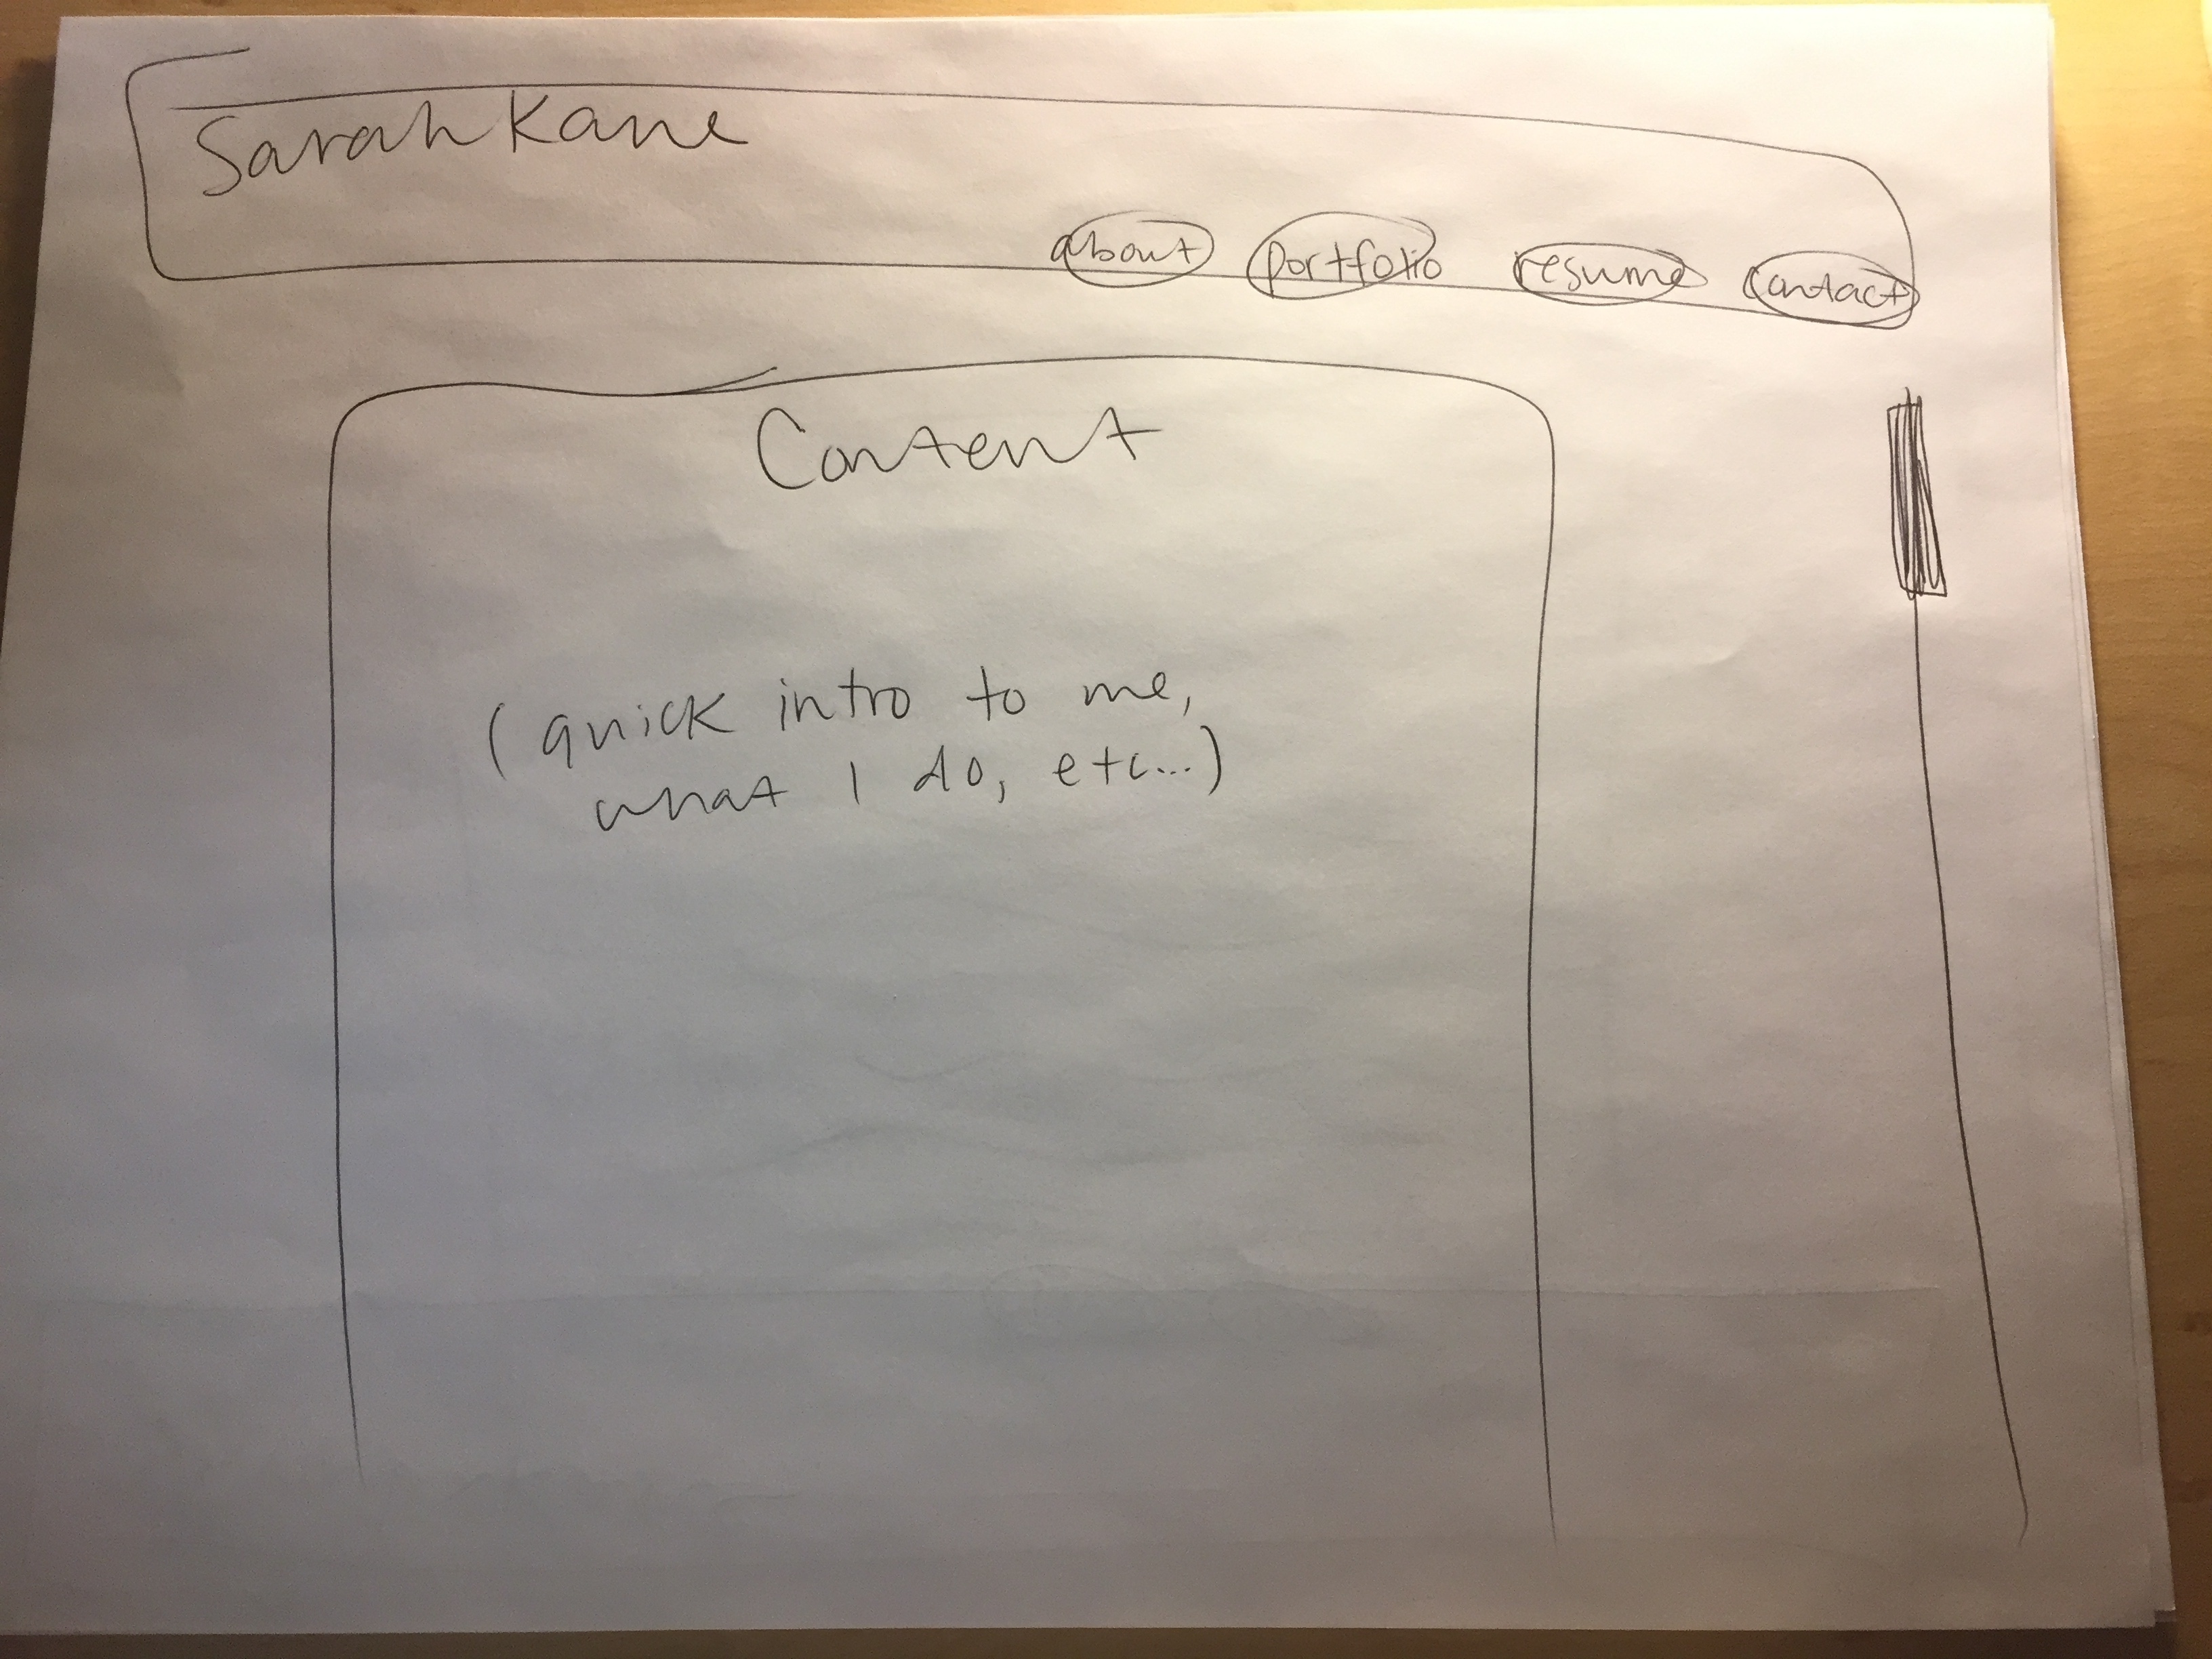 Sarah Kane
about portfolio resume contact
Content
(quick intro to me,
what I do, etc...)